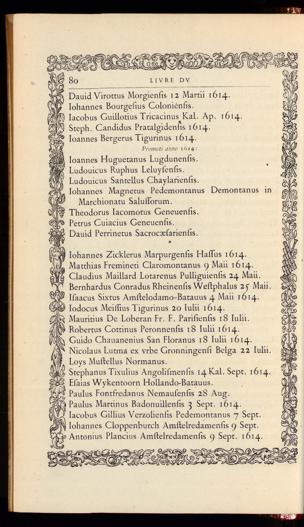 80 LIVRE DV
Dauid Virottus Morgienſis 12 Martii 1614.
Iohannes Bourgeſius Colonienſis.
Iacobus Guillotius Tricacinus Kal. Ap. 1614.
Steph. Candidus Pratalgidenſis 1614.
Ioannes Bergerus Tigurinus 1614.
Promoti anno 1614:
Ioannes Huguetanus Lugdunenſis.
Ludouicus Ruphus Leluyſenſis.
Ludouicus Santellus Chaylarienſis.
Iohannes Magnetus Pedemontanus Demontanus in
Marchionatu Saluſſorum.
Theodorus Iacomotus Geneuenſis.
Petrus Cuiacius Geneuenſis.
Dauid Perrinetus Sacrocæſarienſis.
Iohannes Zicklerus Marpurgenſis Haſſus 1614.
Matthias Fremineti Claromontanus 9 Maii 1614.
Claudius Maillard Lotarenus Pulliguienſis 24 Maii.
Bernhardus Conradus Rheinenſis Weſtphalus 25 Maii.
Iſaacus Sixtus Amſtelodamo-Batauus 4 Maii 1614.
Iodocus Meiſſius Tigurinus 20 Iulii 1614.
Mauritius De Loheran Fr. F. Pariſienſis 18 Iulii.
Robertus Cottinus Peronnenſis 18 Iulii 1614.
Guido Chauanenius San Floranus 18 Iulii 1614.
Nicolaus Lutma ex vrbe Gronningenſi Belga 22 Iulii.
Loys Muſtellus Normanus.
Stephanus Tixulius Angoliſmenſis 14 Kal. Sept. 1614.
Eſaias Wykentoorn Hollando-Batauus.
Paulus Fontfredanus Nemauſenſis 28 Aug.
Paulus Martinus Badonuillenſis 3 Sept. 1614.
Iacobus Gillius Verzolienſis Pedemontanus 7 Sept.
Iohannes Cloppenburch Amſtelredamenſis 9 Sept.
Antonius Plancius Amſtelredamenſis 9 Sept. 1614.